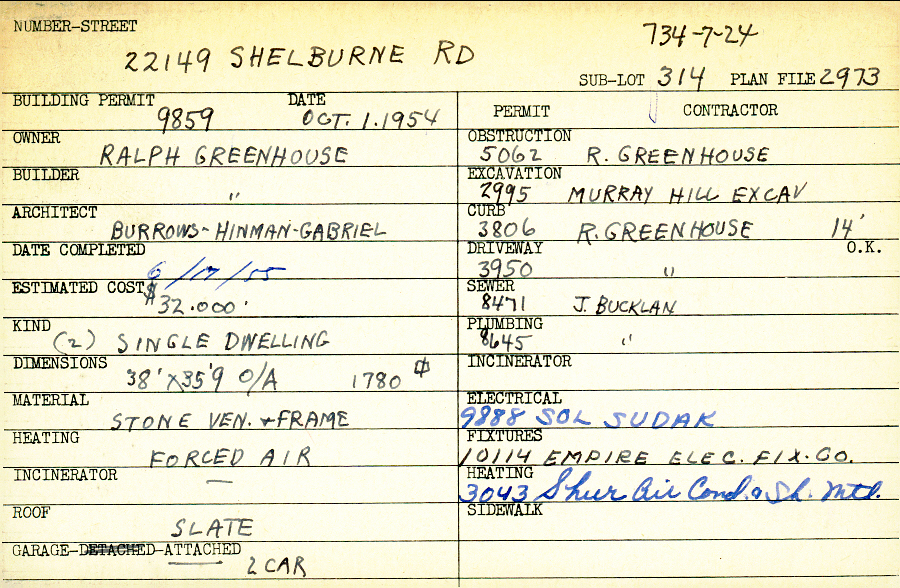 NUMBER-STREET
734-7-24
22149 SHELBURNE RD
SUB-LOT 314 PLAN FILE 2973
BUILDING PERMIT DATE
9859 OCT. 1. 1954
PERMIT CONTRACTOR
OWNER
RALPH GREENHOUSE
OBSTRUCTION
5062 R. GREENHOUSE
BUILDER
"
EXCAVATION
2995 MURRAY HILL EXCAV
ARCHITECT
BURROWS-HINMAN-GABRIEL
CURB
3806 R. GREENHOUSE 14'
DATE COMPLETED
6/17/55
DRIVEWAY O.K.
3950 "
ESTIMATED COST
$32.000.
SEWER
8471 J. BUCKLAN
KIND
(2) SINGLE DWELLING
PLUMBING
8645 "
DIMENSIONS
38' X 35'9 O/A 1780
INCINERATOR
MATERIAL
STONE VEN. + FRAME
ELECTRICAL
9888 SOL SUDAK
HEATING
FORCED AIR
FIXTURES
10114 EMPIRE ELEC. FIX. CO.
INCINERATOR
—
HEATING
3043 Shur Air Cond. & Sh. Mtl.
ROOF
SLATE
SIDEWALK
GARAGE-DETACHED-ATTACHED
2 CAR